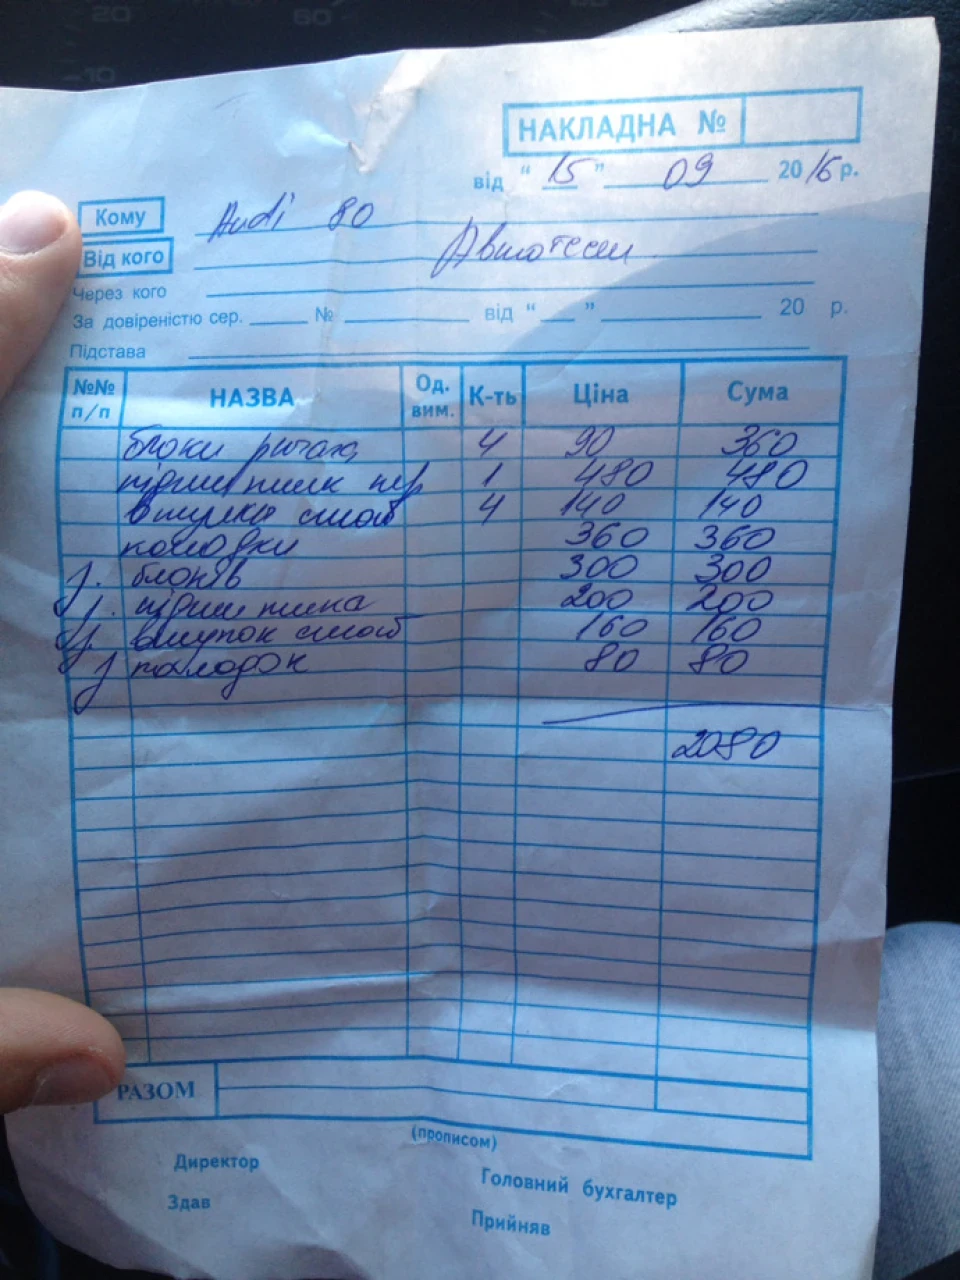 20 60
-10
НАКЛАДНА №
від " 15 " 09 2016 р.
Кому Audi 80
Від кого
Через кого
За довіреністю сер. № від " " 20 р.
Підстава
№№ п/п НАЗВА Од. вим. К-ть Ціна Сума
блоки 4 90 360
підшипник пер 1 480 480
втулки стаб 4 140 140
колодки 360 360
з. блоків 300 300
з. підшипника 200 200
з. втулок стаб 160 160
з колодок 80 80
2080
РАЗОМ
(прописом)
Директор Головний бухгалтер
Здав Прийняв